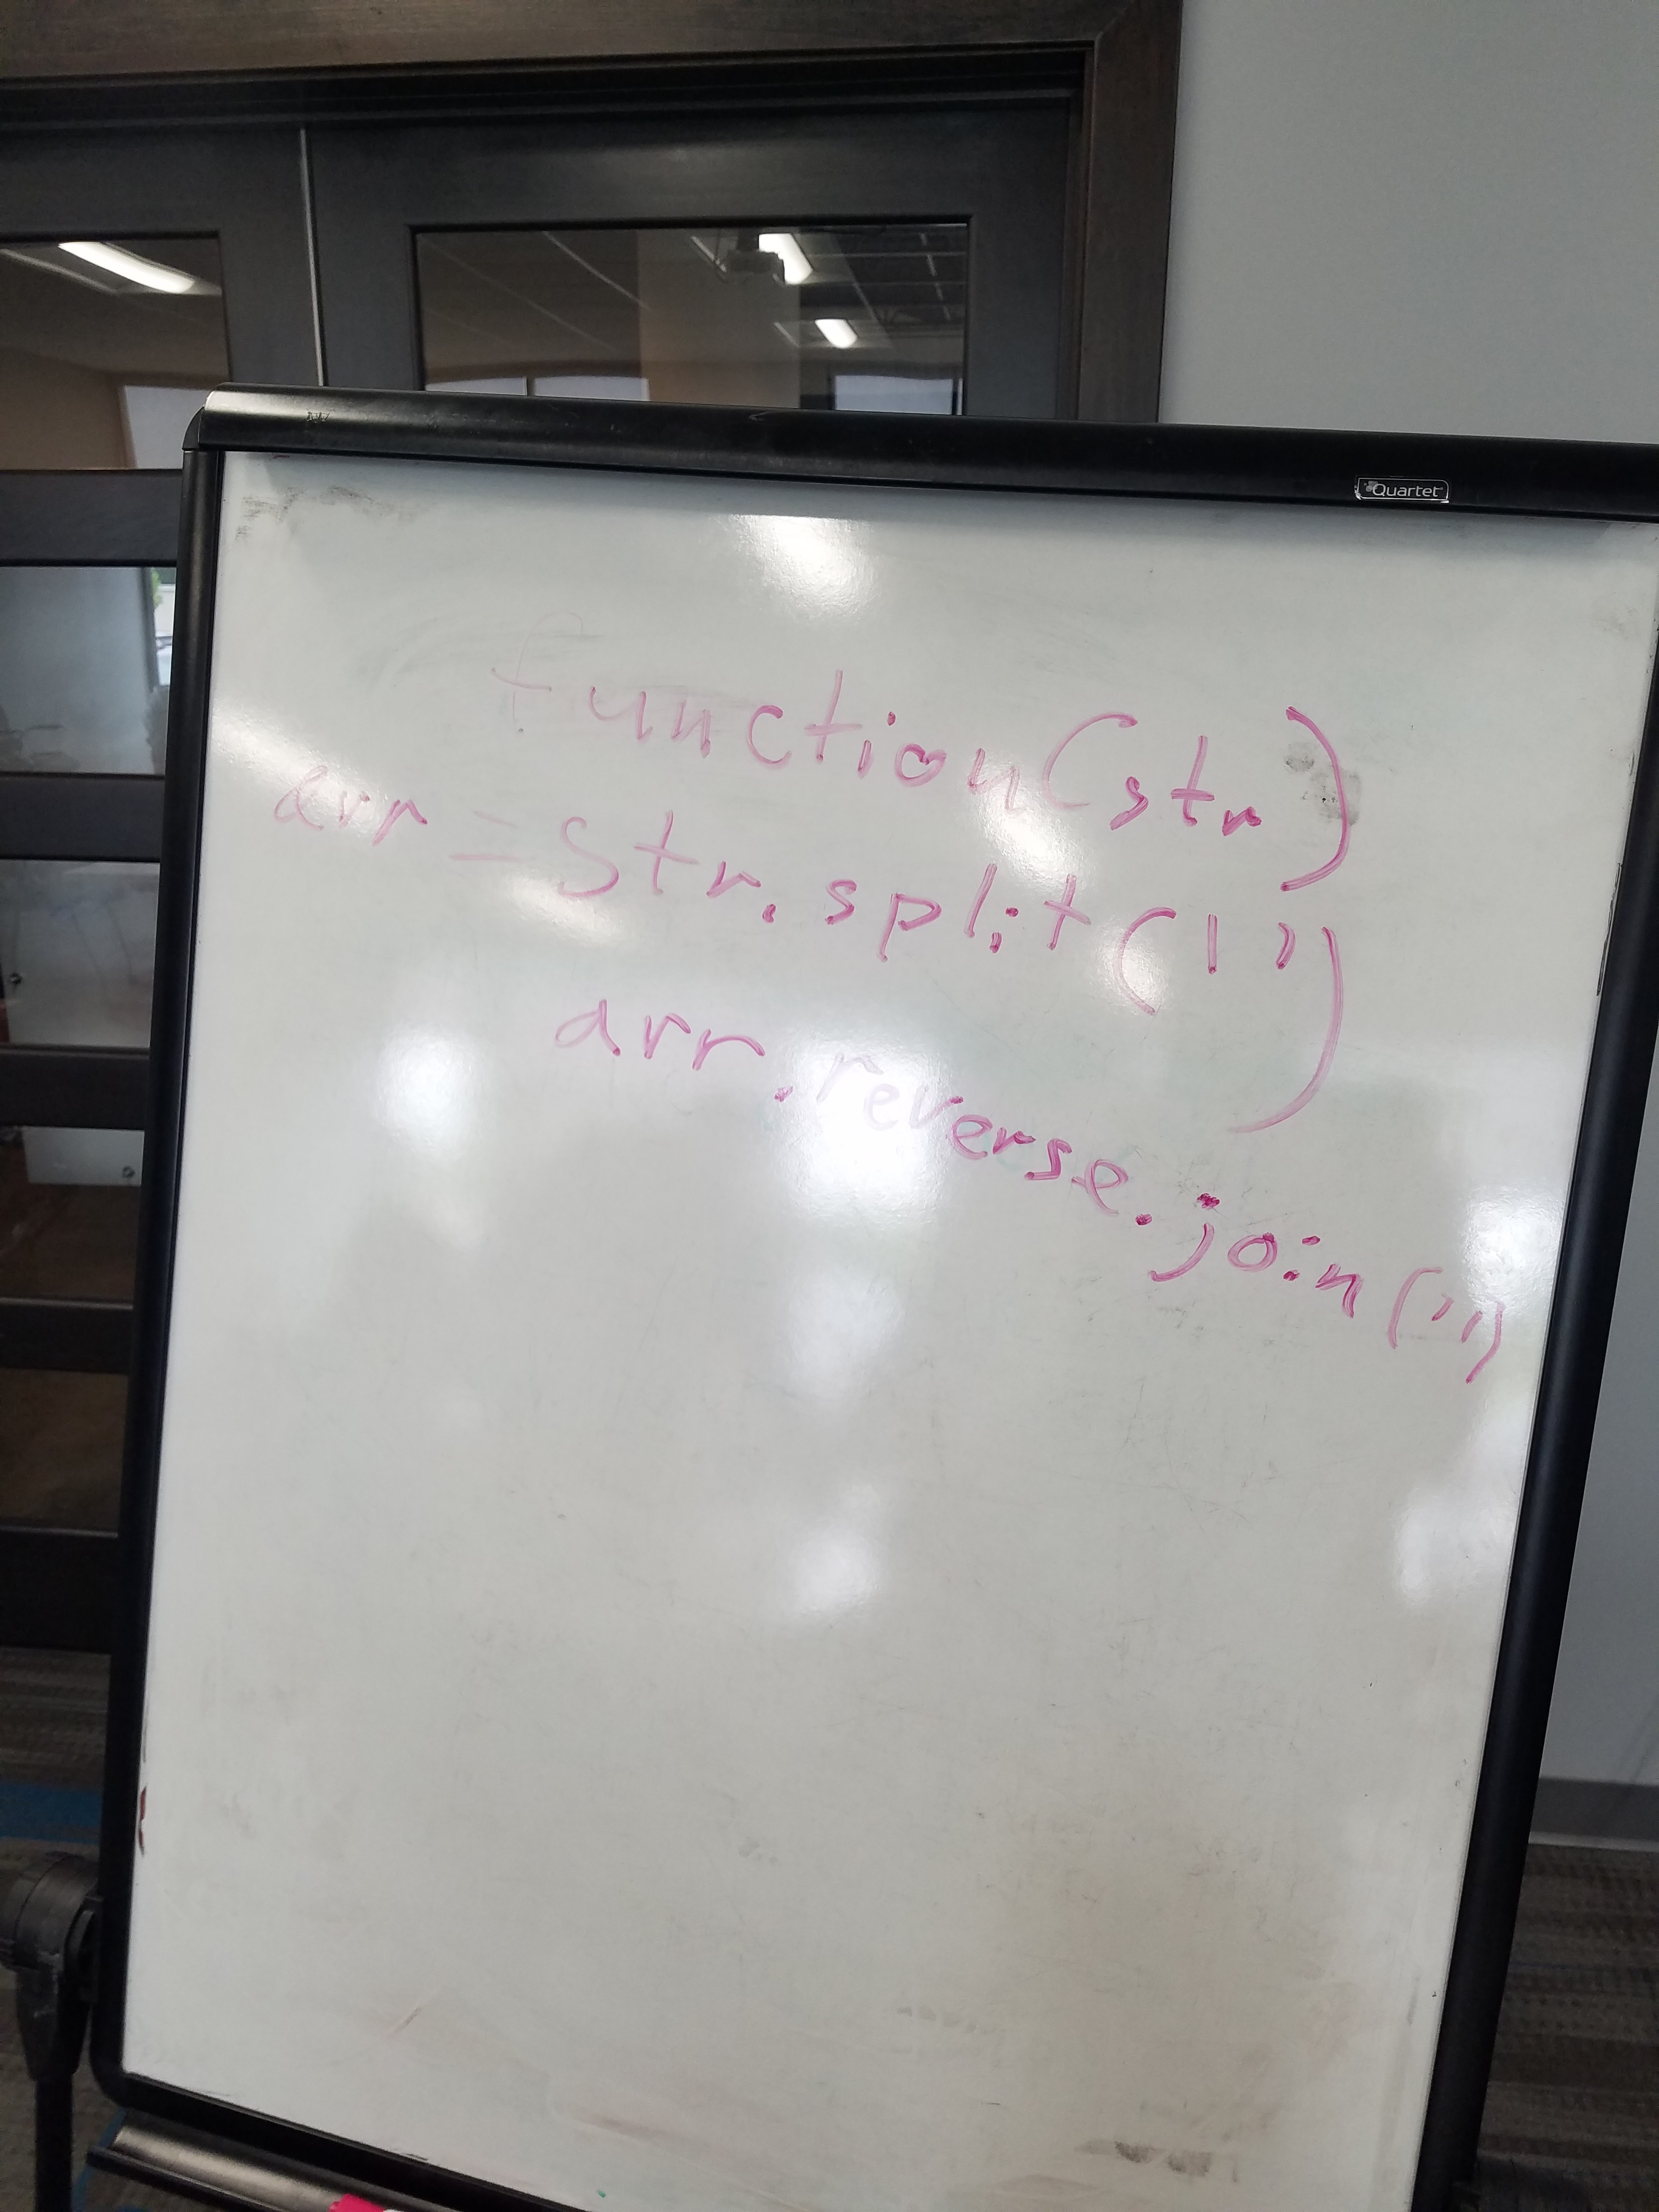 Quartet
function(str)
arr = str.split('')
arr.reverse.join('')